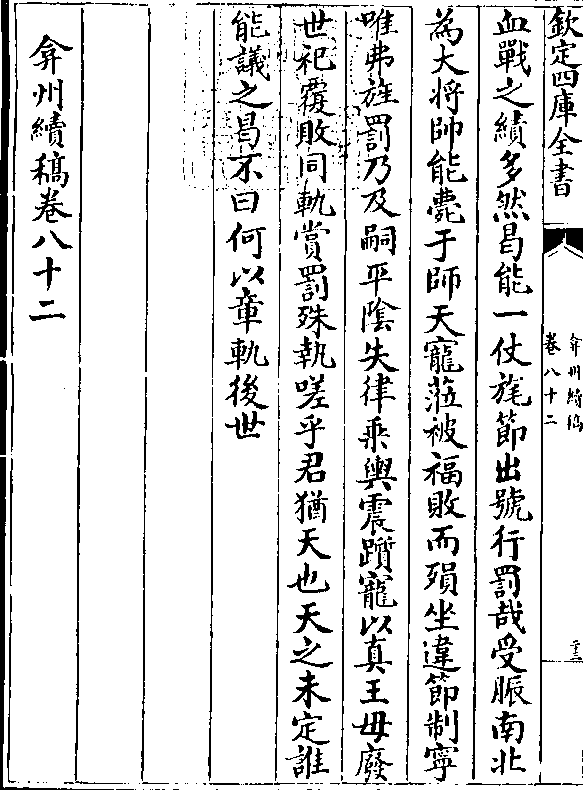 欽定四庫全書
弇州續稿
卷八十二
血戰之績多然曷能一仗旄節出號行罰哉受脤南北
為大將帥能斃于師天寵蒞被福敗而殞坐違節制寧
唯弗旌罰乃及嗣平陰失律乘輿震躓寵以真王毋廢
世祀覆敗同軌賞罰殊執嗟乎君猶天也天之未定誰
能議之曷不曰何以章軌後世
弇州續稿卷八十二